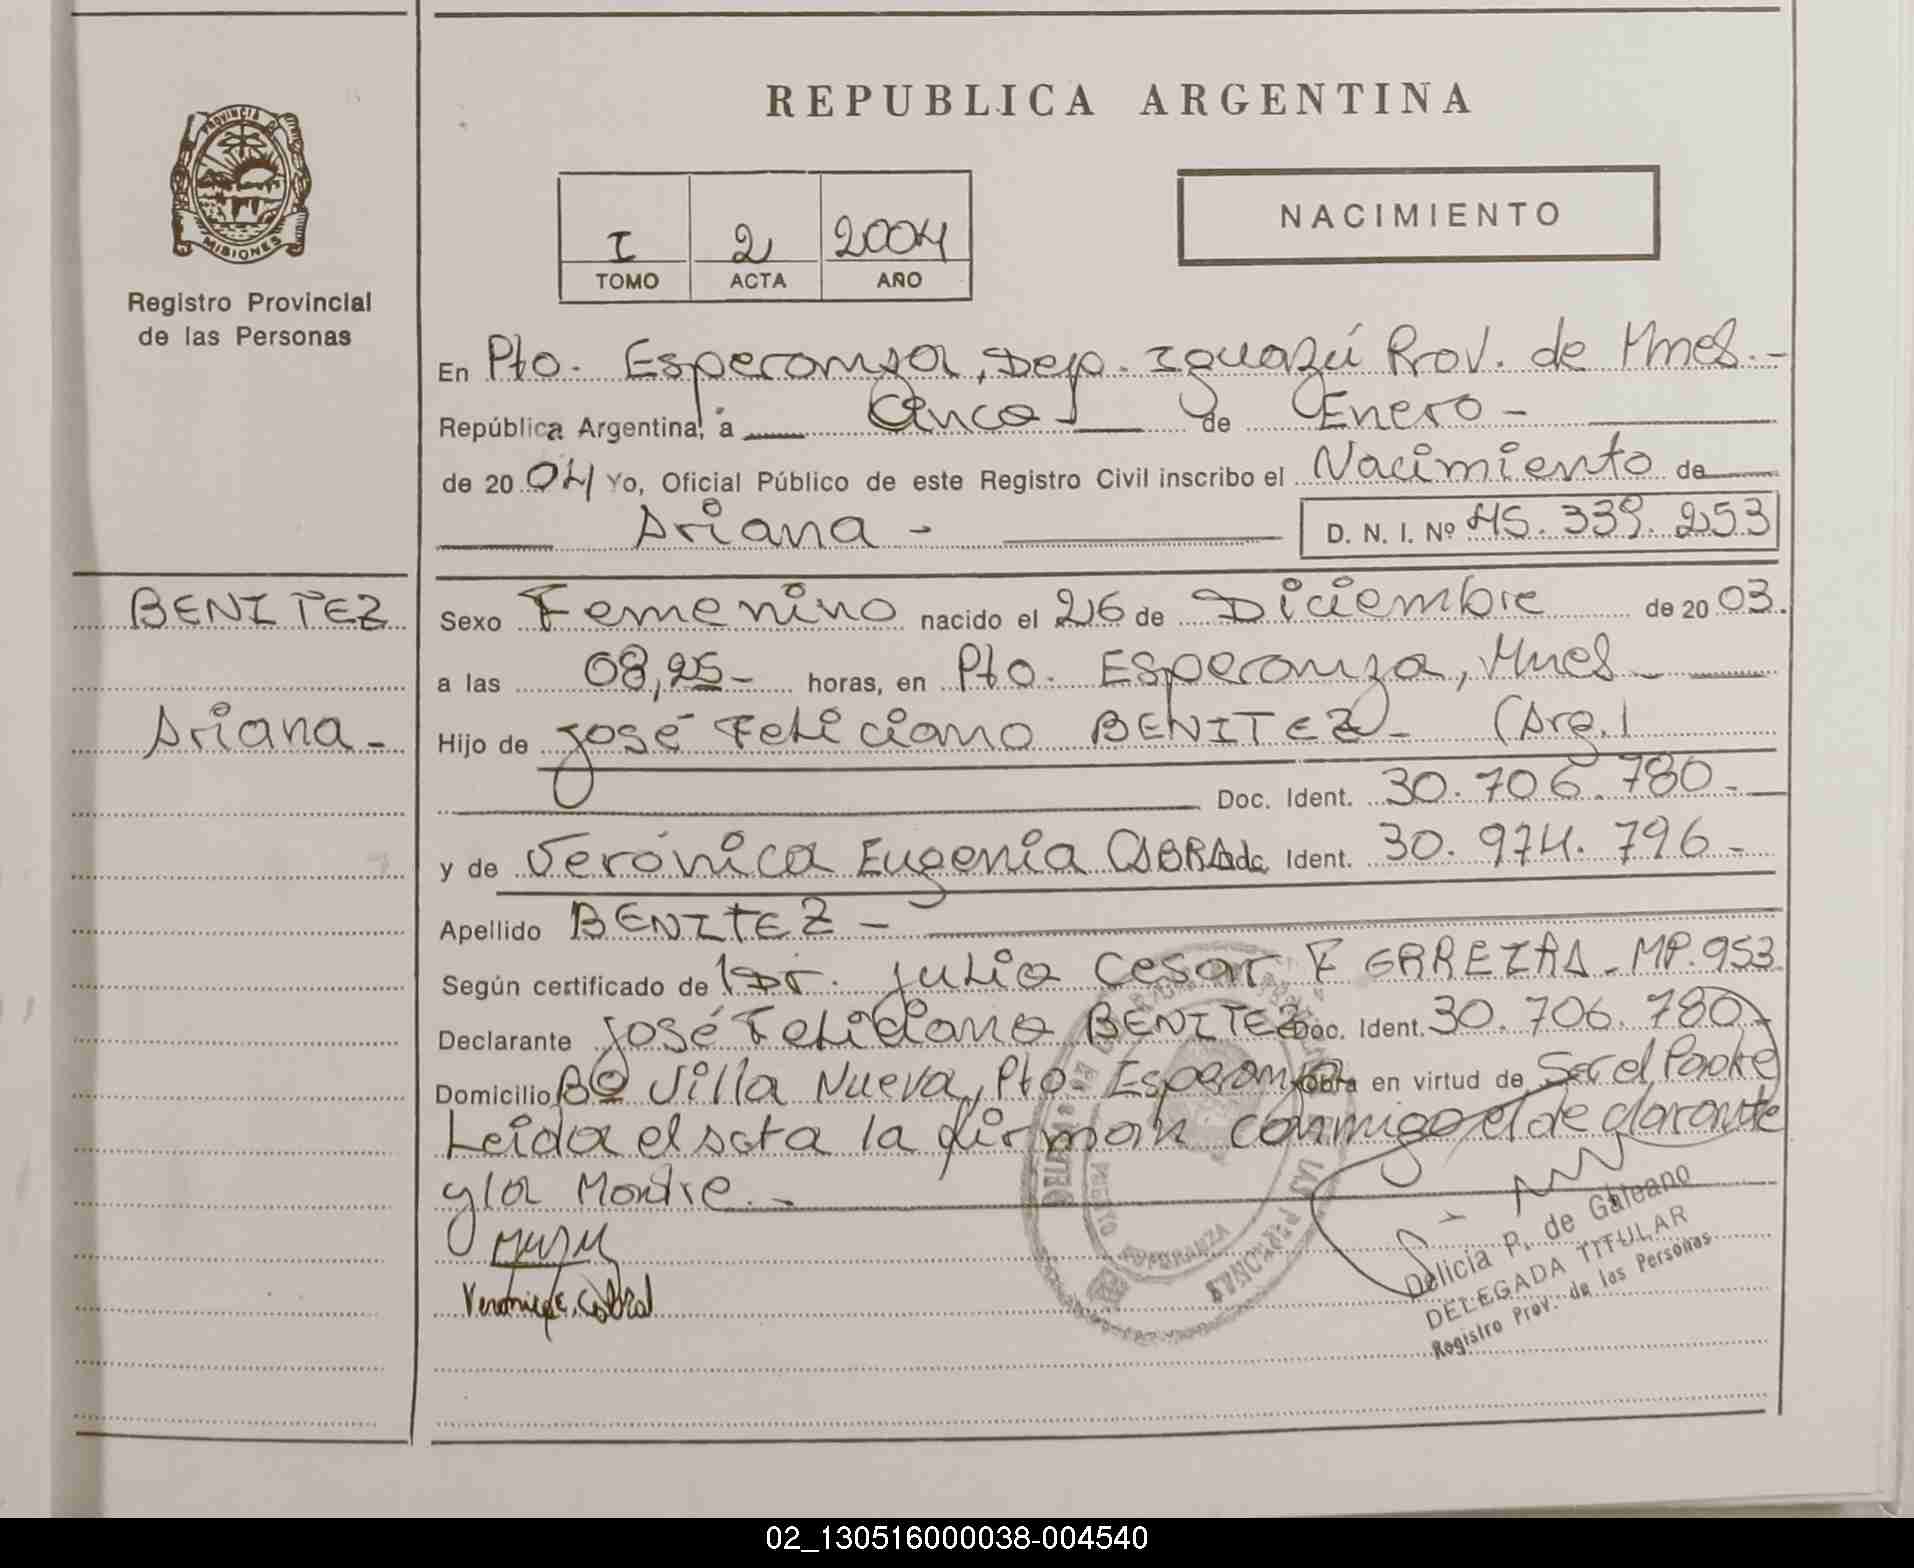 REPUBLICA ARGENTINA
PROVINCIA DE
MISIONES
Registro Provincial
de las Personas
I 2 2004
TOMO ACTA AÑO
NACIMIENTO
En Pto. Esperanza, Dep. Iguazú Prov. de Mnes.-
República Argentina, a Cinco de Enero -
de 2004 Yo, Oficial Público de este Registro Civil inscribo el Nacimiento de
Ariana - D. N. I. Nº 45.339.253
BENITEZ
Ariana -
Sexo Femenino nacido el 26 de Diciembre de 2003.
a las 08,25- horas, en Pto. Esperanza, Mnes -
Hijo de José Feliciano BENITEZ - (Arg.)
Doc. Ident. 30.706.780-
y de Verónica Eugenia CABRAL Doc. Ident. 30.974.796-
Apellido BENITEZ -
Según certificado de Dr. Julio Cesar FERREIRA - MP.953
Declarante José Feliciano BENITEZ Doc. Ident. 30.706.780-
Domicilio Bº Villa Nueva, Pto. Esperanza obra en virtud de Ser el Padre
Leida el acta la firman conmigo el declarante
y la Madre.-
Veronica E. Cabral
PUERTO ESPERANZA
LAS PERSONAS
Delicia P. de Galeano
DELEGADA TITULAR
Registro Prov. de las Personas
02_130516000038-004540